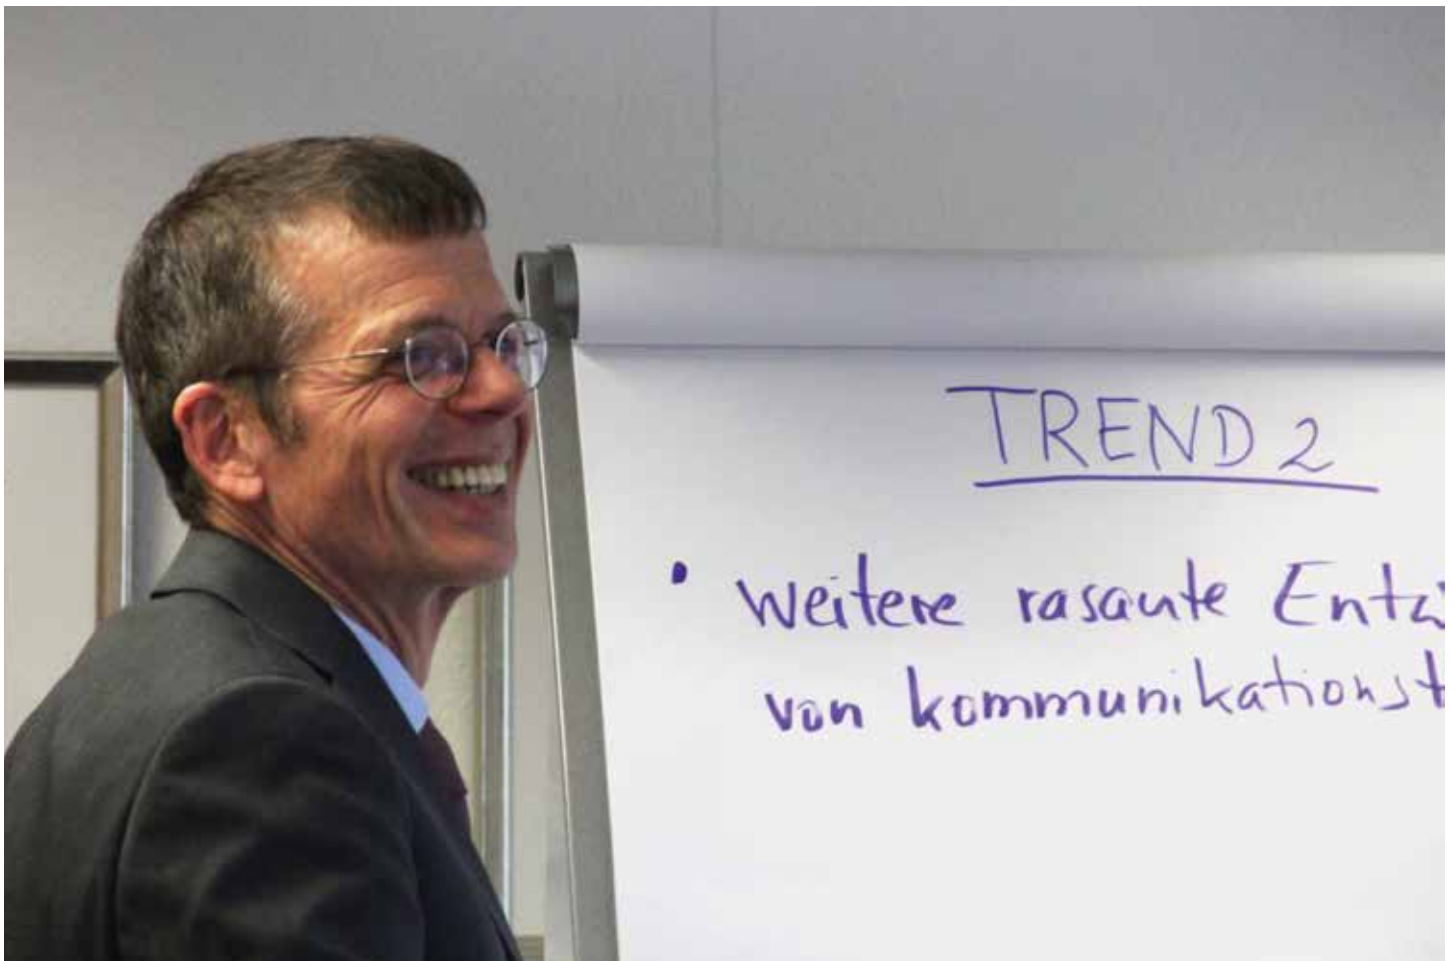 TREND 2
• Weitere rasante Entw
von kommunikationst